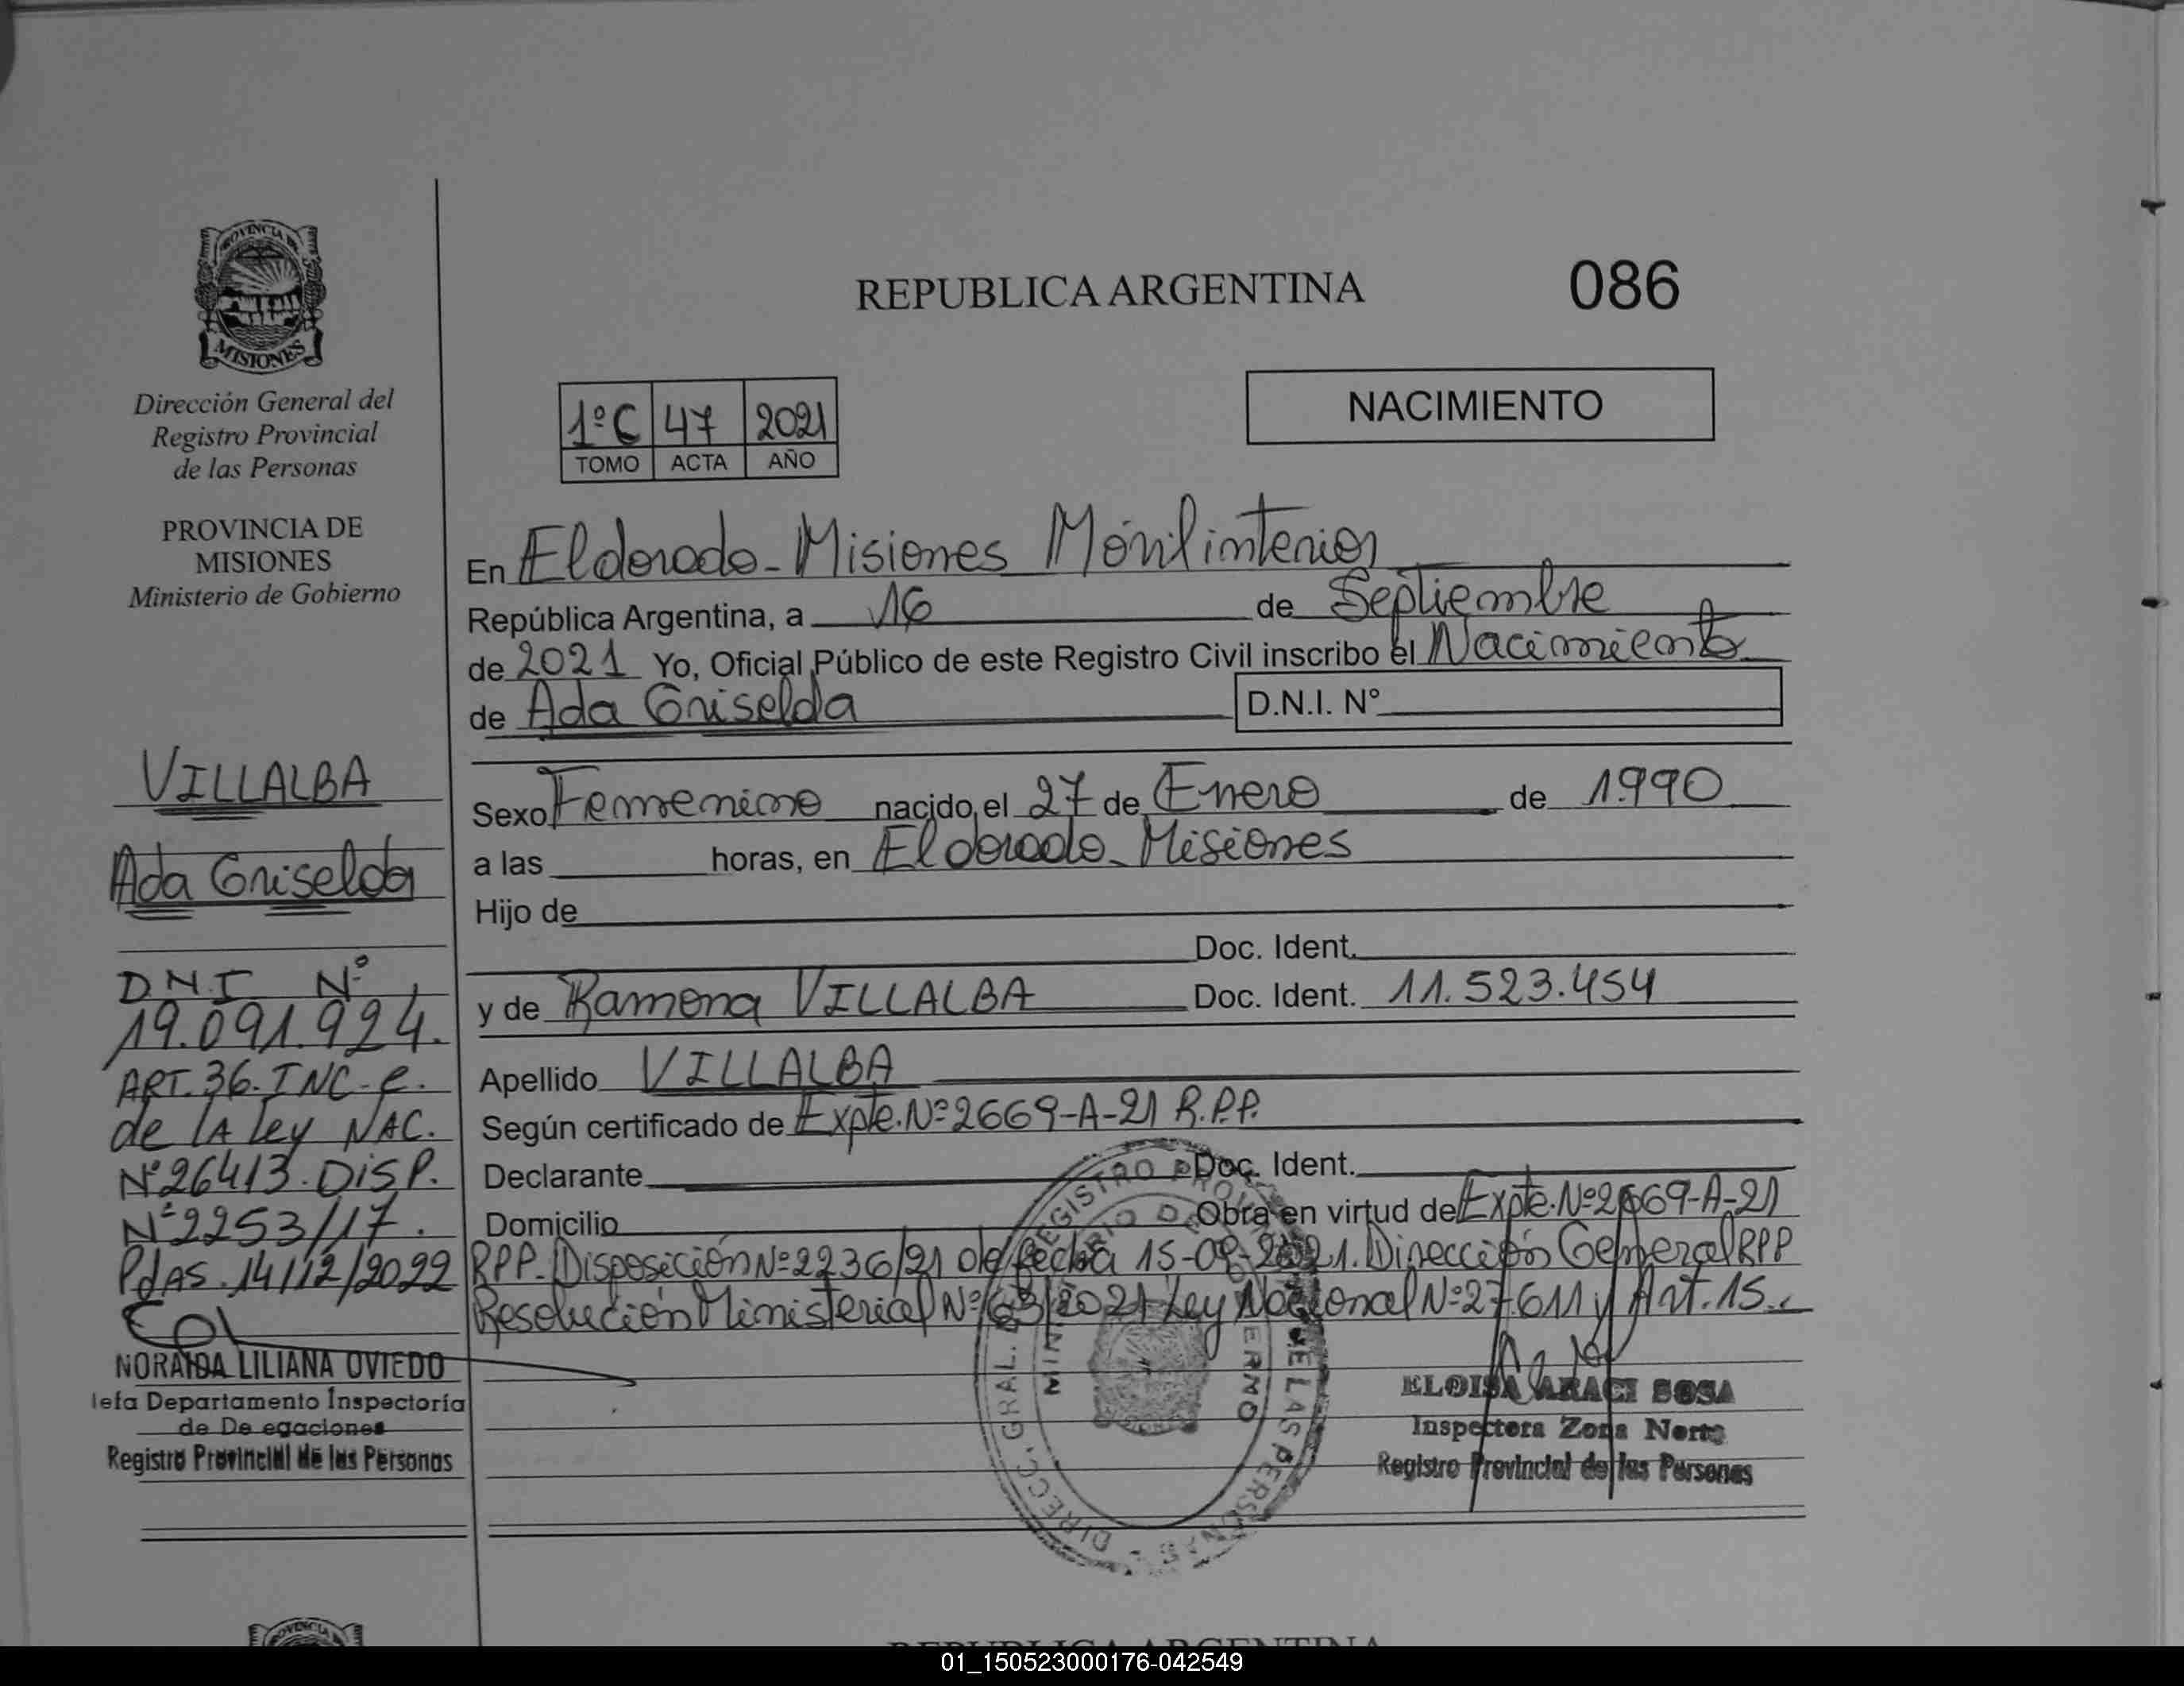 PROVINCIA DE
MISIONES
Dirección General del
Registro Provincial
de las Personas
PROVINCIA DE
MISIONES
Ministerio de Gobierno
VILLALBA
Ada Griselda
D.N.I Nº
19.091.924.
ART.36-INC-e.
de lA Ley NAC.
Nº26413.DISP.
Nº2253/17.
PdAS.14/12/2022
NORAIDA LILIANA OVIEDO
Jefa Departamento Inspectoría
de De egaciones
Registro Provincial de las Personas
REPUBLICA ARGENTINA
086
NACIMIENTO
1ºC 47 2021
TOMO ACTA AÑO
En Eldorado-Misiones Móvil interior
República Argentina, a 16 de Septiembre
de 2021 Yo, Oficial Público de este Registro Civil inscribo el Nacimiento
de Ada Griselda D.N.I. Nº
Sexo Femenino nacido el 27 de Enero de 1990
a las horas, en Eldorado-Misiones
Hijo de
Doc. Ident.
y de Ramona VILLALBA Doc. Ident. 11.523.454
Apellido VILLALBA
Según certificado de Expte.Nº2669-A-21 R.P.P.
Declarante Doc. Ident.
Domicilio Obra en virtud de Expte.Nº2669-A-21
RPP-Disposición Nº2236/21 de fecha 15-09-2021. Dirección General RPP
Resolución Ministerial Nº 2021 Ley Nacional Nº27.611 y Art.15.-
ELOISA ARACI SOSA
Inspectora Zona Norte
Registro Provincial de las Personas
DIRECC. GRAL. REGISTRO PROV DE LAS PERSONAS
REPUBLICA ARGENTINA
01_150523000176-042549